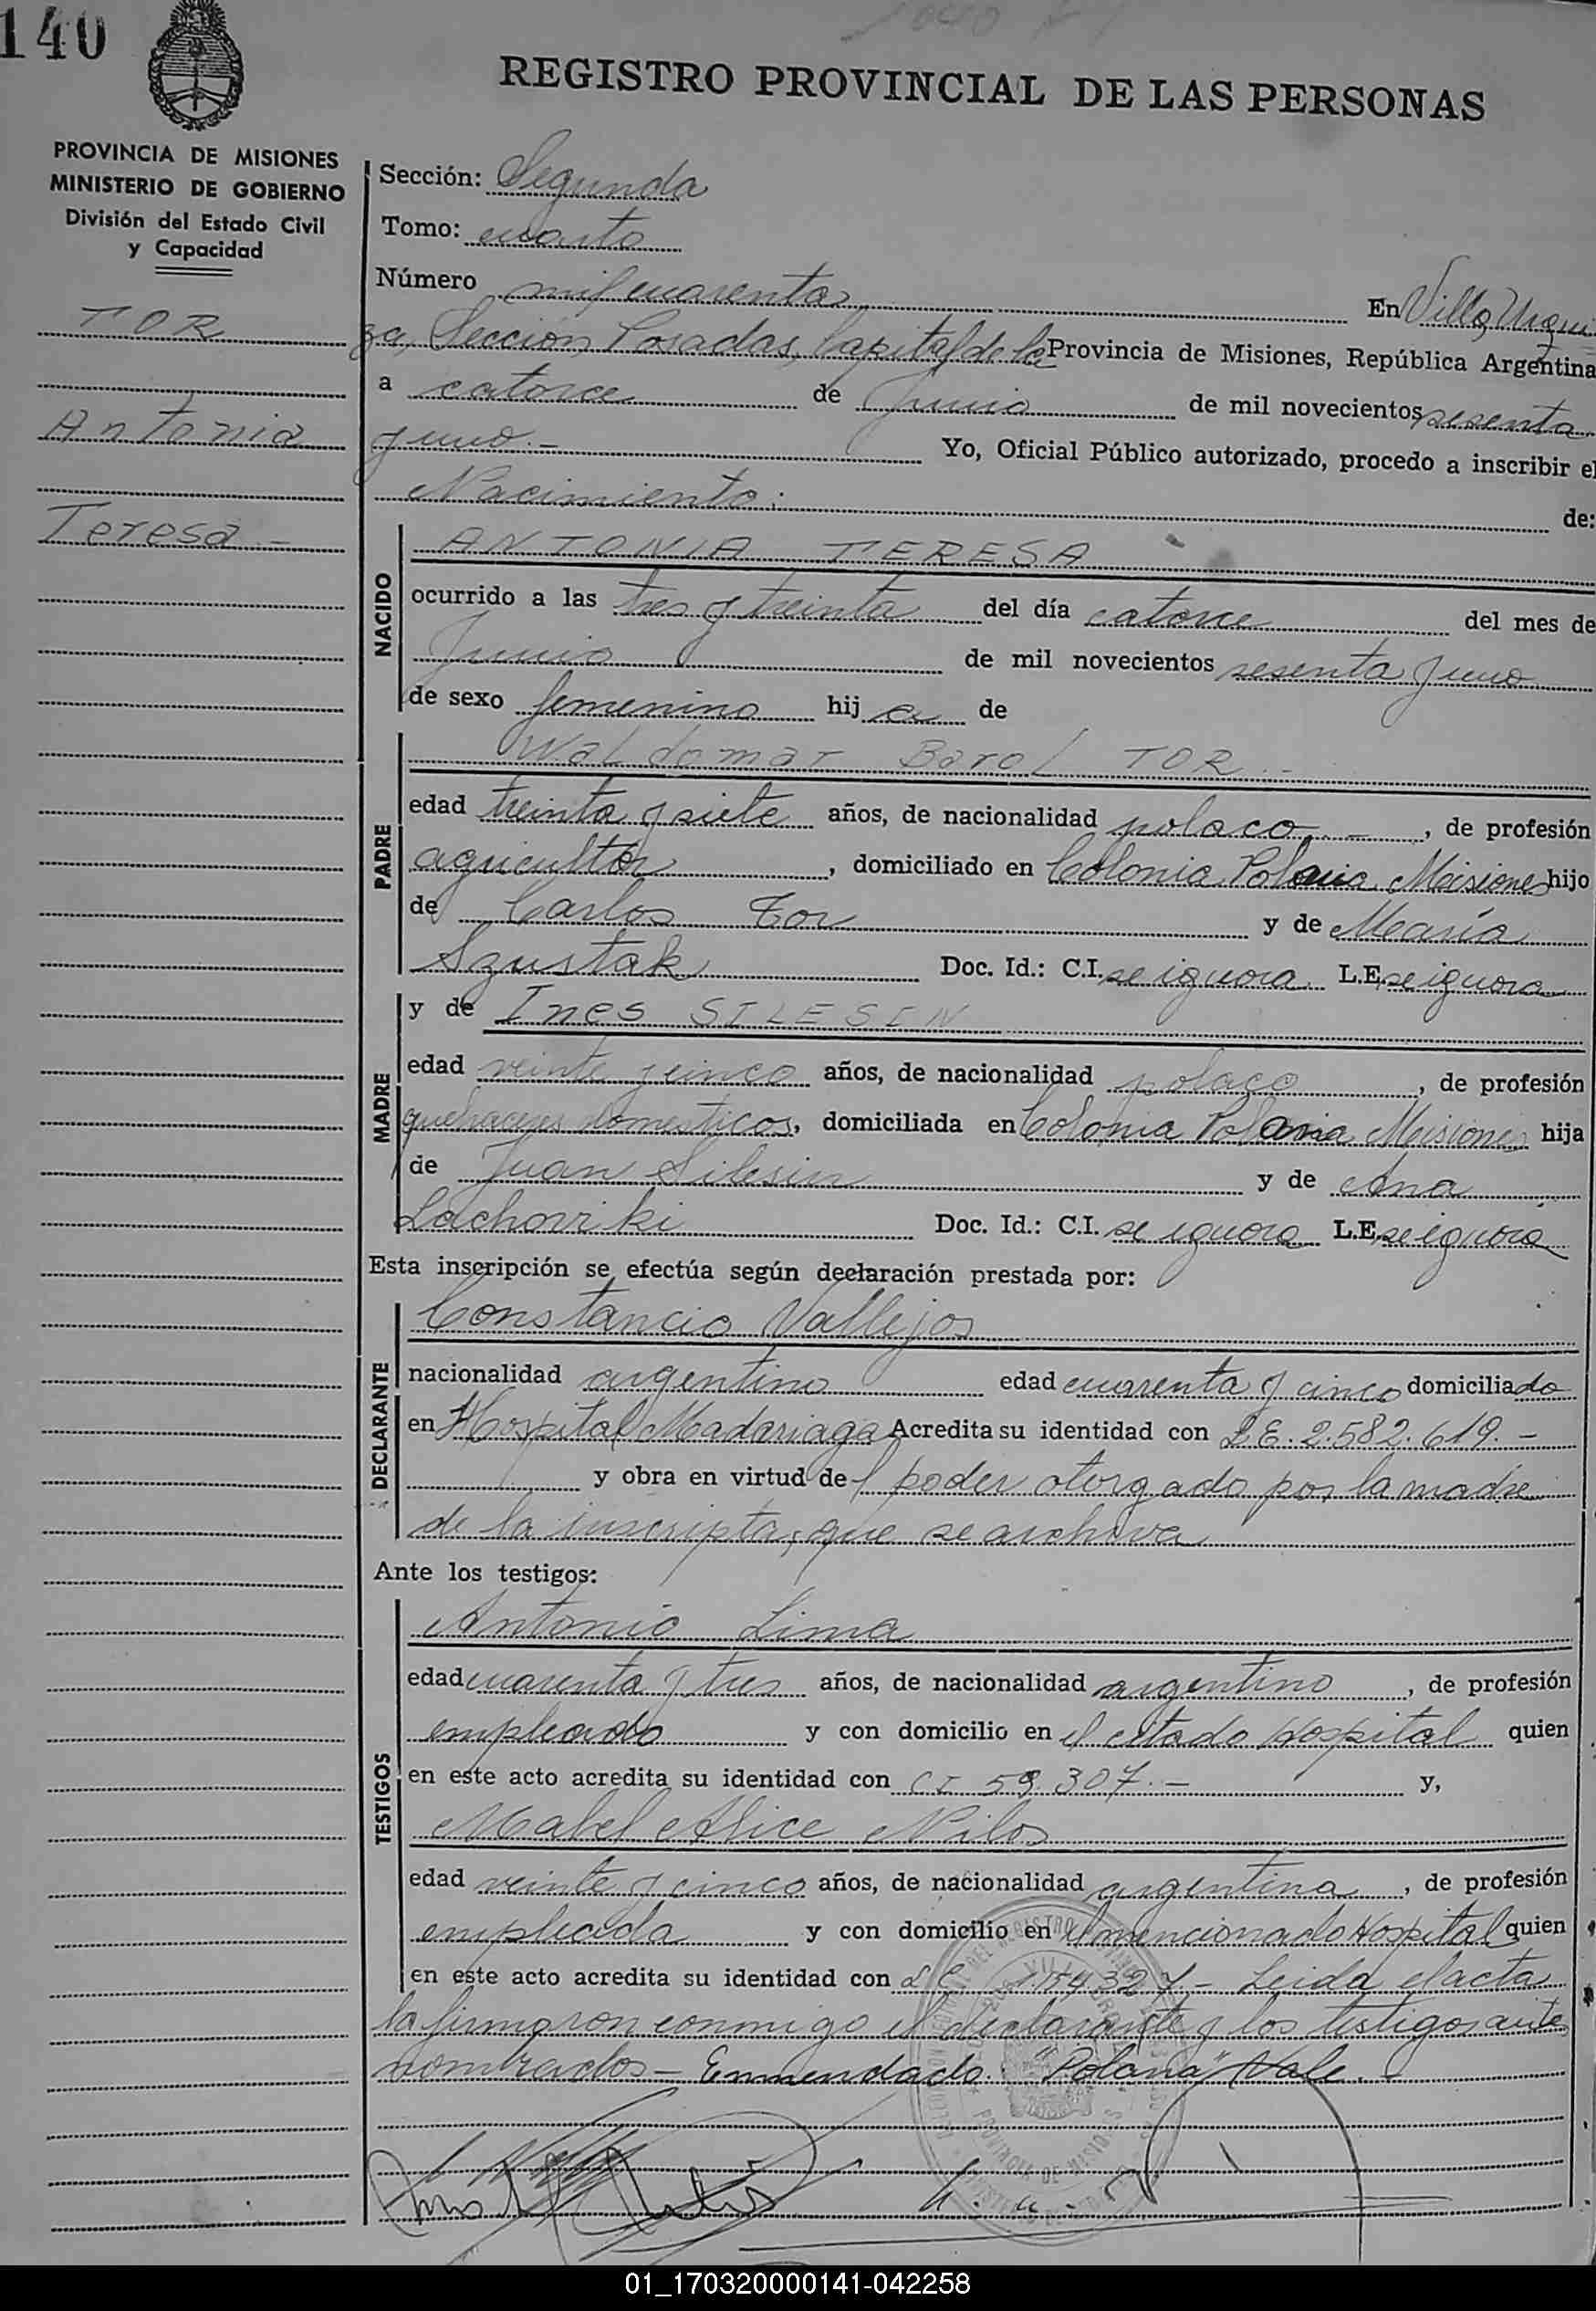 140
REGISTRO PROVINCIAL DE LAS PERSONAS
PROVINCIA DE MISIONES
MINISTERIO DE GOBIERNO
División del Estado Civil
y Capacidad
TOR
Antonia
Teresa.-
Sección: Segunda
Tomo: cuarto
Número mil cuarenta En Villa Urqui
za, Sección Posadas, Capital de la Provincia de Misiones, República Argentina
a catorce de Junio de mil novecientos sesenta
y uno.- Yo, Oficial Público autorizado, procedo a inscribir el
Nacimiento: de:
NACIDO
ANTONIA TERESA
ocurrido a las tres y treinta del día catorce del mes de
Junio de mil novecientos sesenta y uno
de sexo femenino hij a de
PADRE
Waldomar Barol TOR.-
edad treinta y siete años, de nacionalidad polaco.-, de profesión
agricultor, domiciliado en Colonia Polana Misiones hijo
de Carlos Tor y de María
Szustak Doc. Id.: C.I. se ignora L.E. se ignora
MADRE
y de Ines SILESIN
edad veinte y cinco años, de nacionalidad polaco, de profesión
quehaceres domesticos, domiciliada en Colonia Polana Misiones hija
de Juan Silesin y de Ana
Lachoviki Doc. Id.: C.I. se ignora L.E. se ignora
Esta inscripción se efectúa según declaración prestada por:
DECLARANTE
Constancio Vallejos
nacionalidad argentino edad cuarenta y cinco domiciliado
en Hospital Madariaga Acredita su identidad con L E. 2.582.619.-
y obra en virtud del poder otorgado por la madre
de la inscripta, que se archiva
Ante los testigos:
TESTIGOS
Antonio Lima
edad cuarenta y tres años, de nacionalidad argentino, de profesión
empleado y con domicilio en el citado Hospital quien
en este acto acredita su identidad con CI 59.307.- y,
Mabel Alice Nilos
edad veinte y cinco años, de nacionalidad argentina, de profesión
empleada y con domicilio en el mencionado Hospital quien
en este acto acredita su identidad con L C 1.154.327- Leida el acta
la firmaron conmigo el declarante y los testigos ante
nombrados- Enmendado: "Polana" Vale.-
PROVINCIA DE MISIONES
01_170320000141-042258